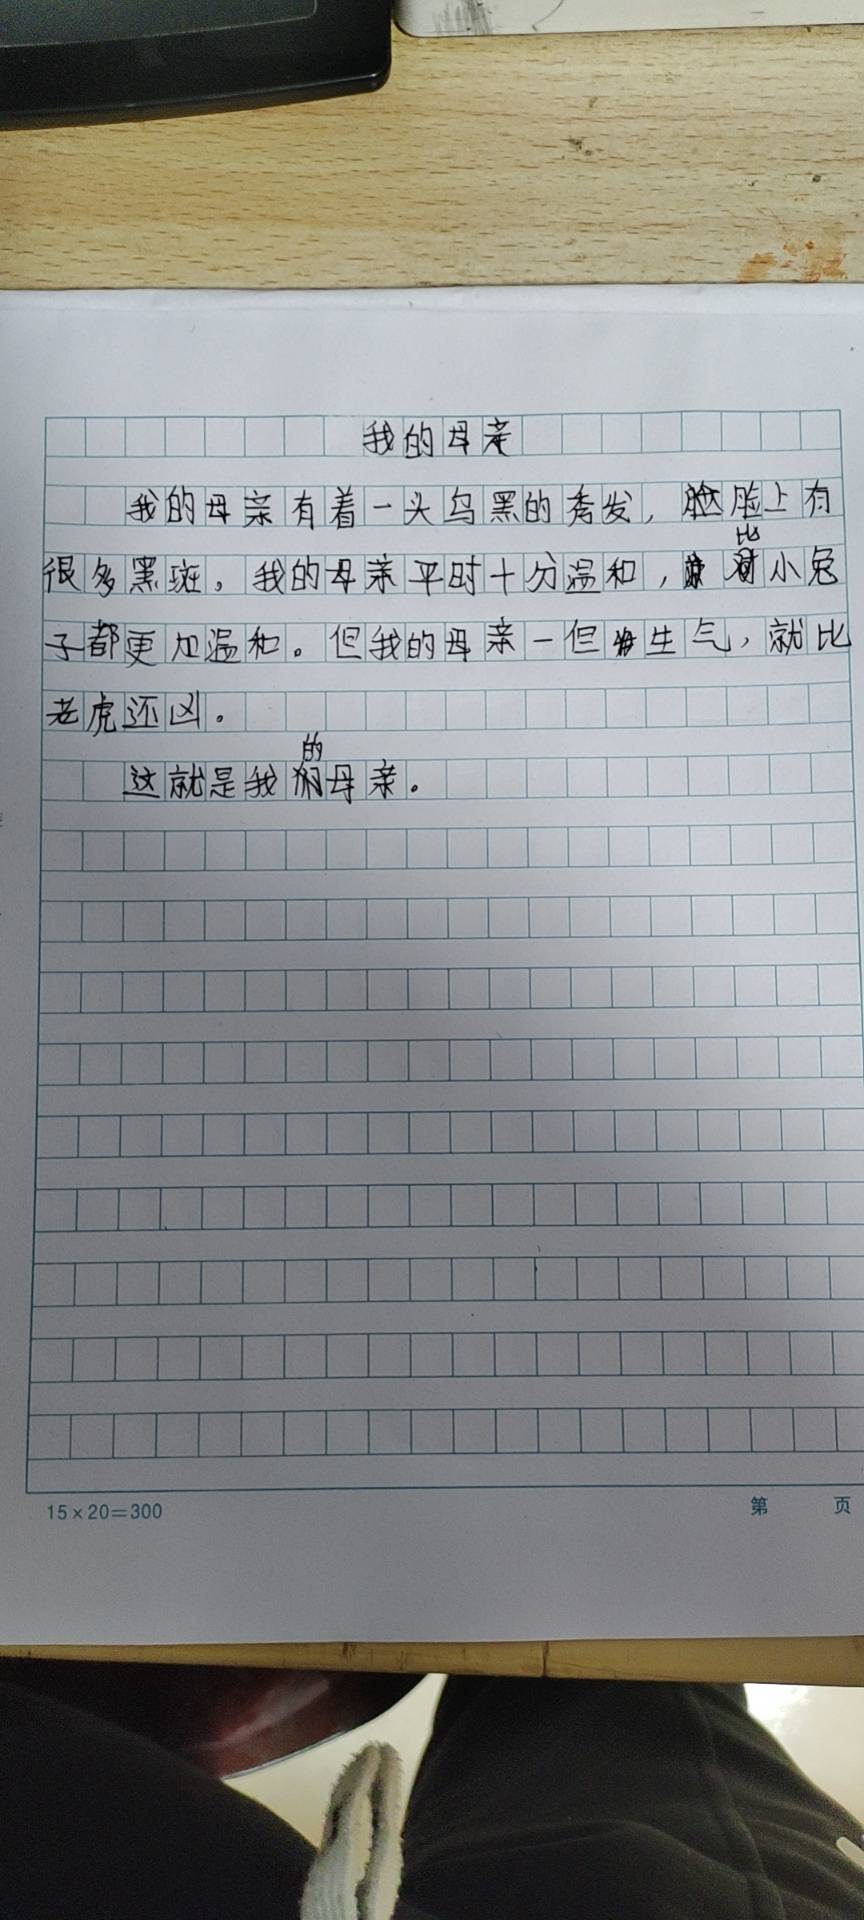 我的母亲
我的母亲有着一头乌黑的秀发，脸上有
很多黑斑。我的母亲平时十分温和，比小兔
子都更加温和。但我的母亲一但生气，就比
老虎还凶。
这就是我的母亲。
15×20=300
第 页